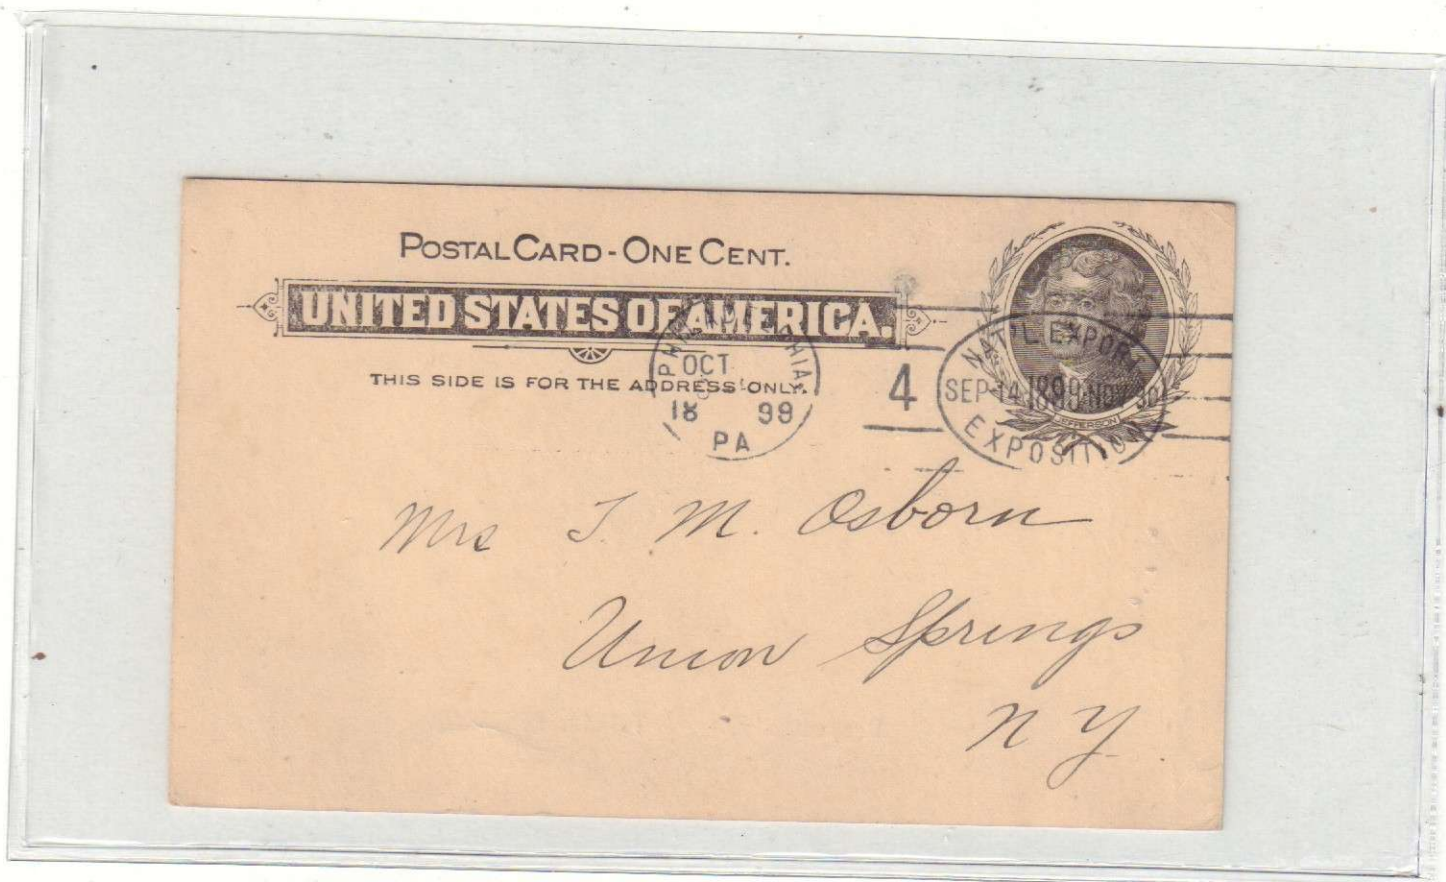 POSTAL CARD - ONE CENT.
UNITED STATES OF AMERICA.
THIS SIDE IS FOR THE ADDRESS ONLY.
PHILADELPHIA
OCT
1899
PA
4
NAT'L EXPORT
SEP-14-1899-NOV 30
EXPOSITION
JEFFERSON
Mrs T. M. Osborn
Union Springs
NY